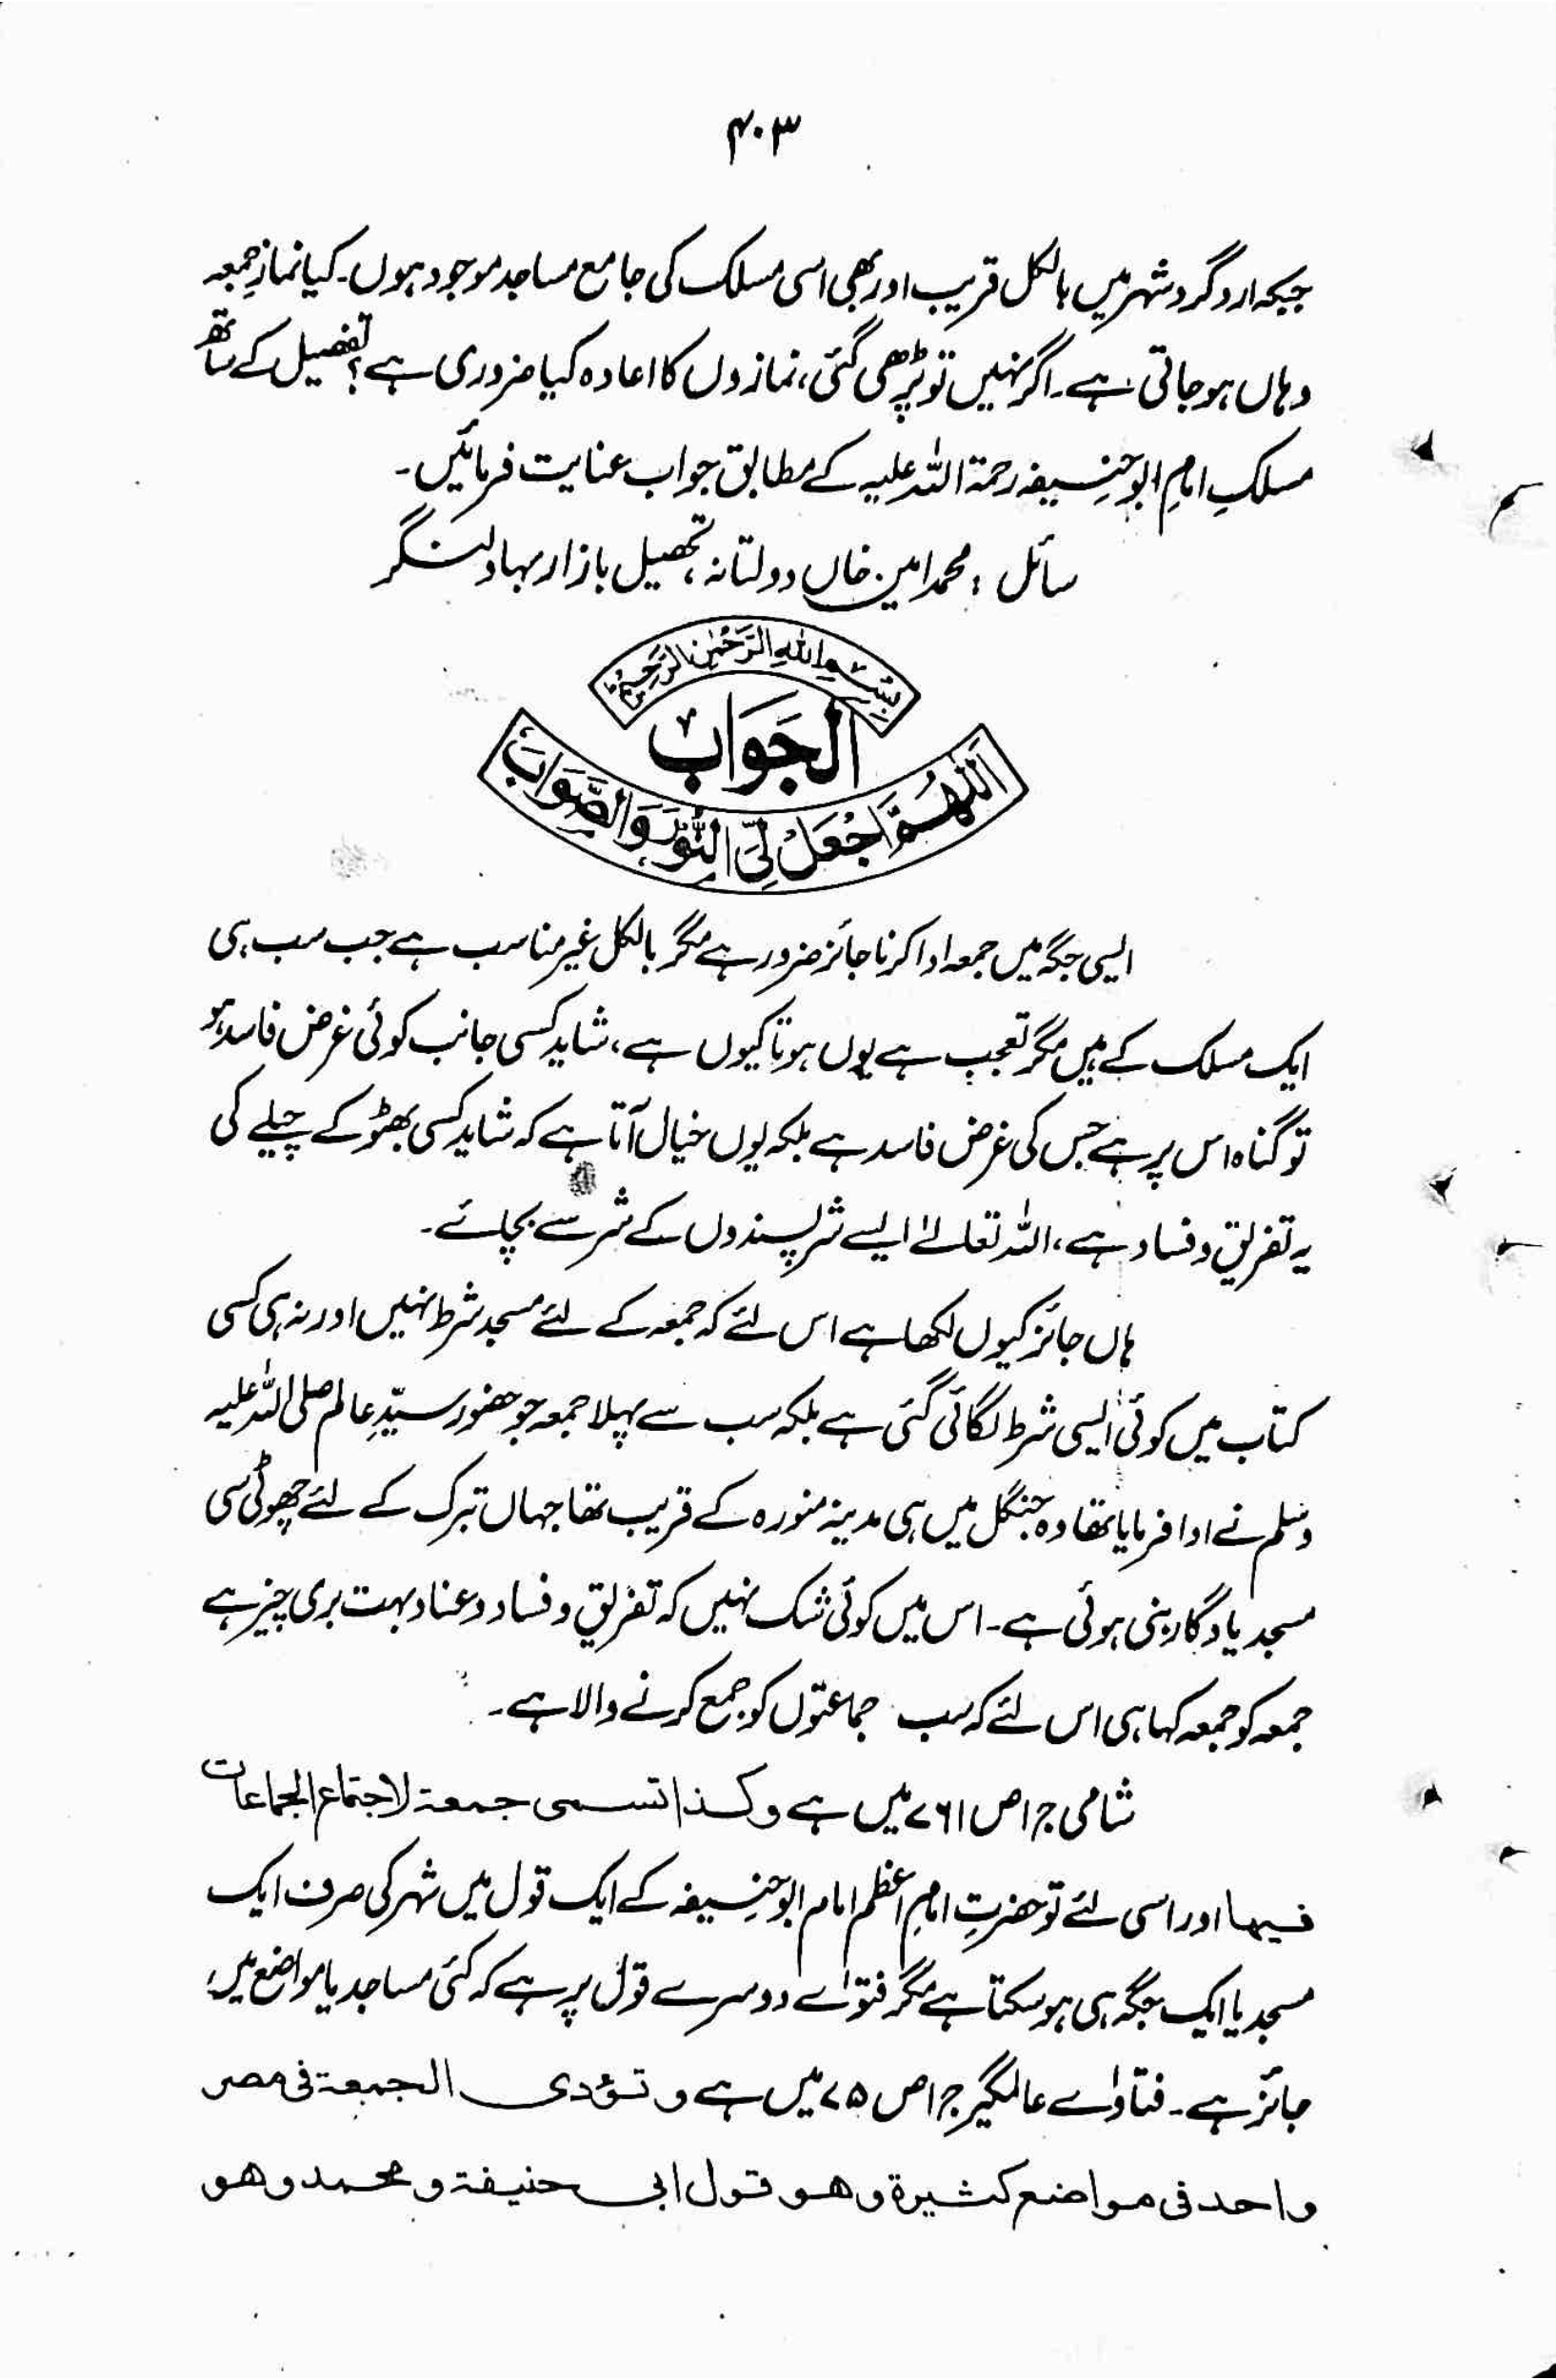 ۴۰۳
جبکہ اردگرد شہر میں بالکل قریب اور بھی اسی مسلک کی جامع مساجد موجود ہوں۔ کیا نمازِ جمعہ
وہاں ہو جاتی ہے۔ اگر نہیں تو پڑھی گئی، نمازوں کا اعادہ کیا ضروری ہے؟ تفصیل کے ساتھ
مسلکِ امامِ ابو حنیفہ رحمۃ اللہ علیہ کے مطابق جواب عنایت فرمائیں۔
سائل : محمد امین خاں دولتانہ، تحصیل بازار بہاولنگر
بِسْمِ اللهِ الرَّحْمٰنِ الرَّحِيْمِ
الجَوَاب
اَللّٰهُمَّ اجْعَلْ لِّيَ النُّوْرَ وَالصَّوَابَ
ایسی جگہ میں جمعہ ادا کرنا جائز ضرور ہے مگر بالکل غیر مناسب ہے جب سب ہی
ایک مسلک کے ہیں مگر تعجب ہے یوں ہوتا کیوں ہے، شاید کسی جانب کوئی غرض فاسد ہو
تو گناہ اس پر ہے جس کی غرض فاسد ہے بلکہ یوں خیال آتا ہے کہ شاید کسی بھٹو کے چیلے کی
یہ تفریق و فساد ہے، اللہ تعالےٰ ایسے شر پسندوں کے شر سے بچائے۔
ہاں جائز کیوں لکھا ہے اس لئے کہ جمعہ کے لئے مسجد شرط نہیں اور نہ ہی کسی
کتاب میں کوئی ایسی شرط لگائی گئی ہے بلکہ سب سے پہلا جمعہ جو حضور سیّدِ عالم صلی اللہ علیہ
وسلم نے ادا فرمایا تھا وہ جنگل میں ہی مدینہ منورہ کے قریب تھا جہاں تبرک کے لئے چھوٹی سی
مسجد یادگار بنی ہوئی ہے۔ اس میں کوئی شک نہیں کہ تفریق و فساد و عناد بہت بری چیز ہے
جمعہ کو جمعہ کہا ہی اس لئے کہ سب جماعتوں کو جمع کرنے والا ہے۔
شامی ج ۱ ص ۷۶۱ میں ہے وکذا تسمی جمعۃ لاجتماع الجماعات
فیہا اور اسی لئے تو حضرتِ امامِ اعظم امام ابو حنیفہ کے ایک قول میں شہر کی صرف ایک
مسجد یا ایک جگہ ہی ہو سکتا ہے مگر فتوٰے دوسرے قول پر ہے کہ کئی مساجد یا مواضع میں
جائز ہے۔ فتاوٰے عالمگیر ج ۱ ص ۷۵ میں ہے و تؤدی الجمعۃ فی مصر
واحد فی مواضع کثیرۃ وھو قول ابی حنیفۃ و محمد وھو